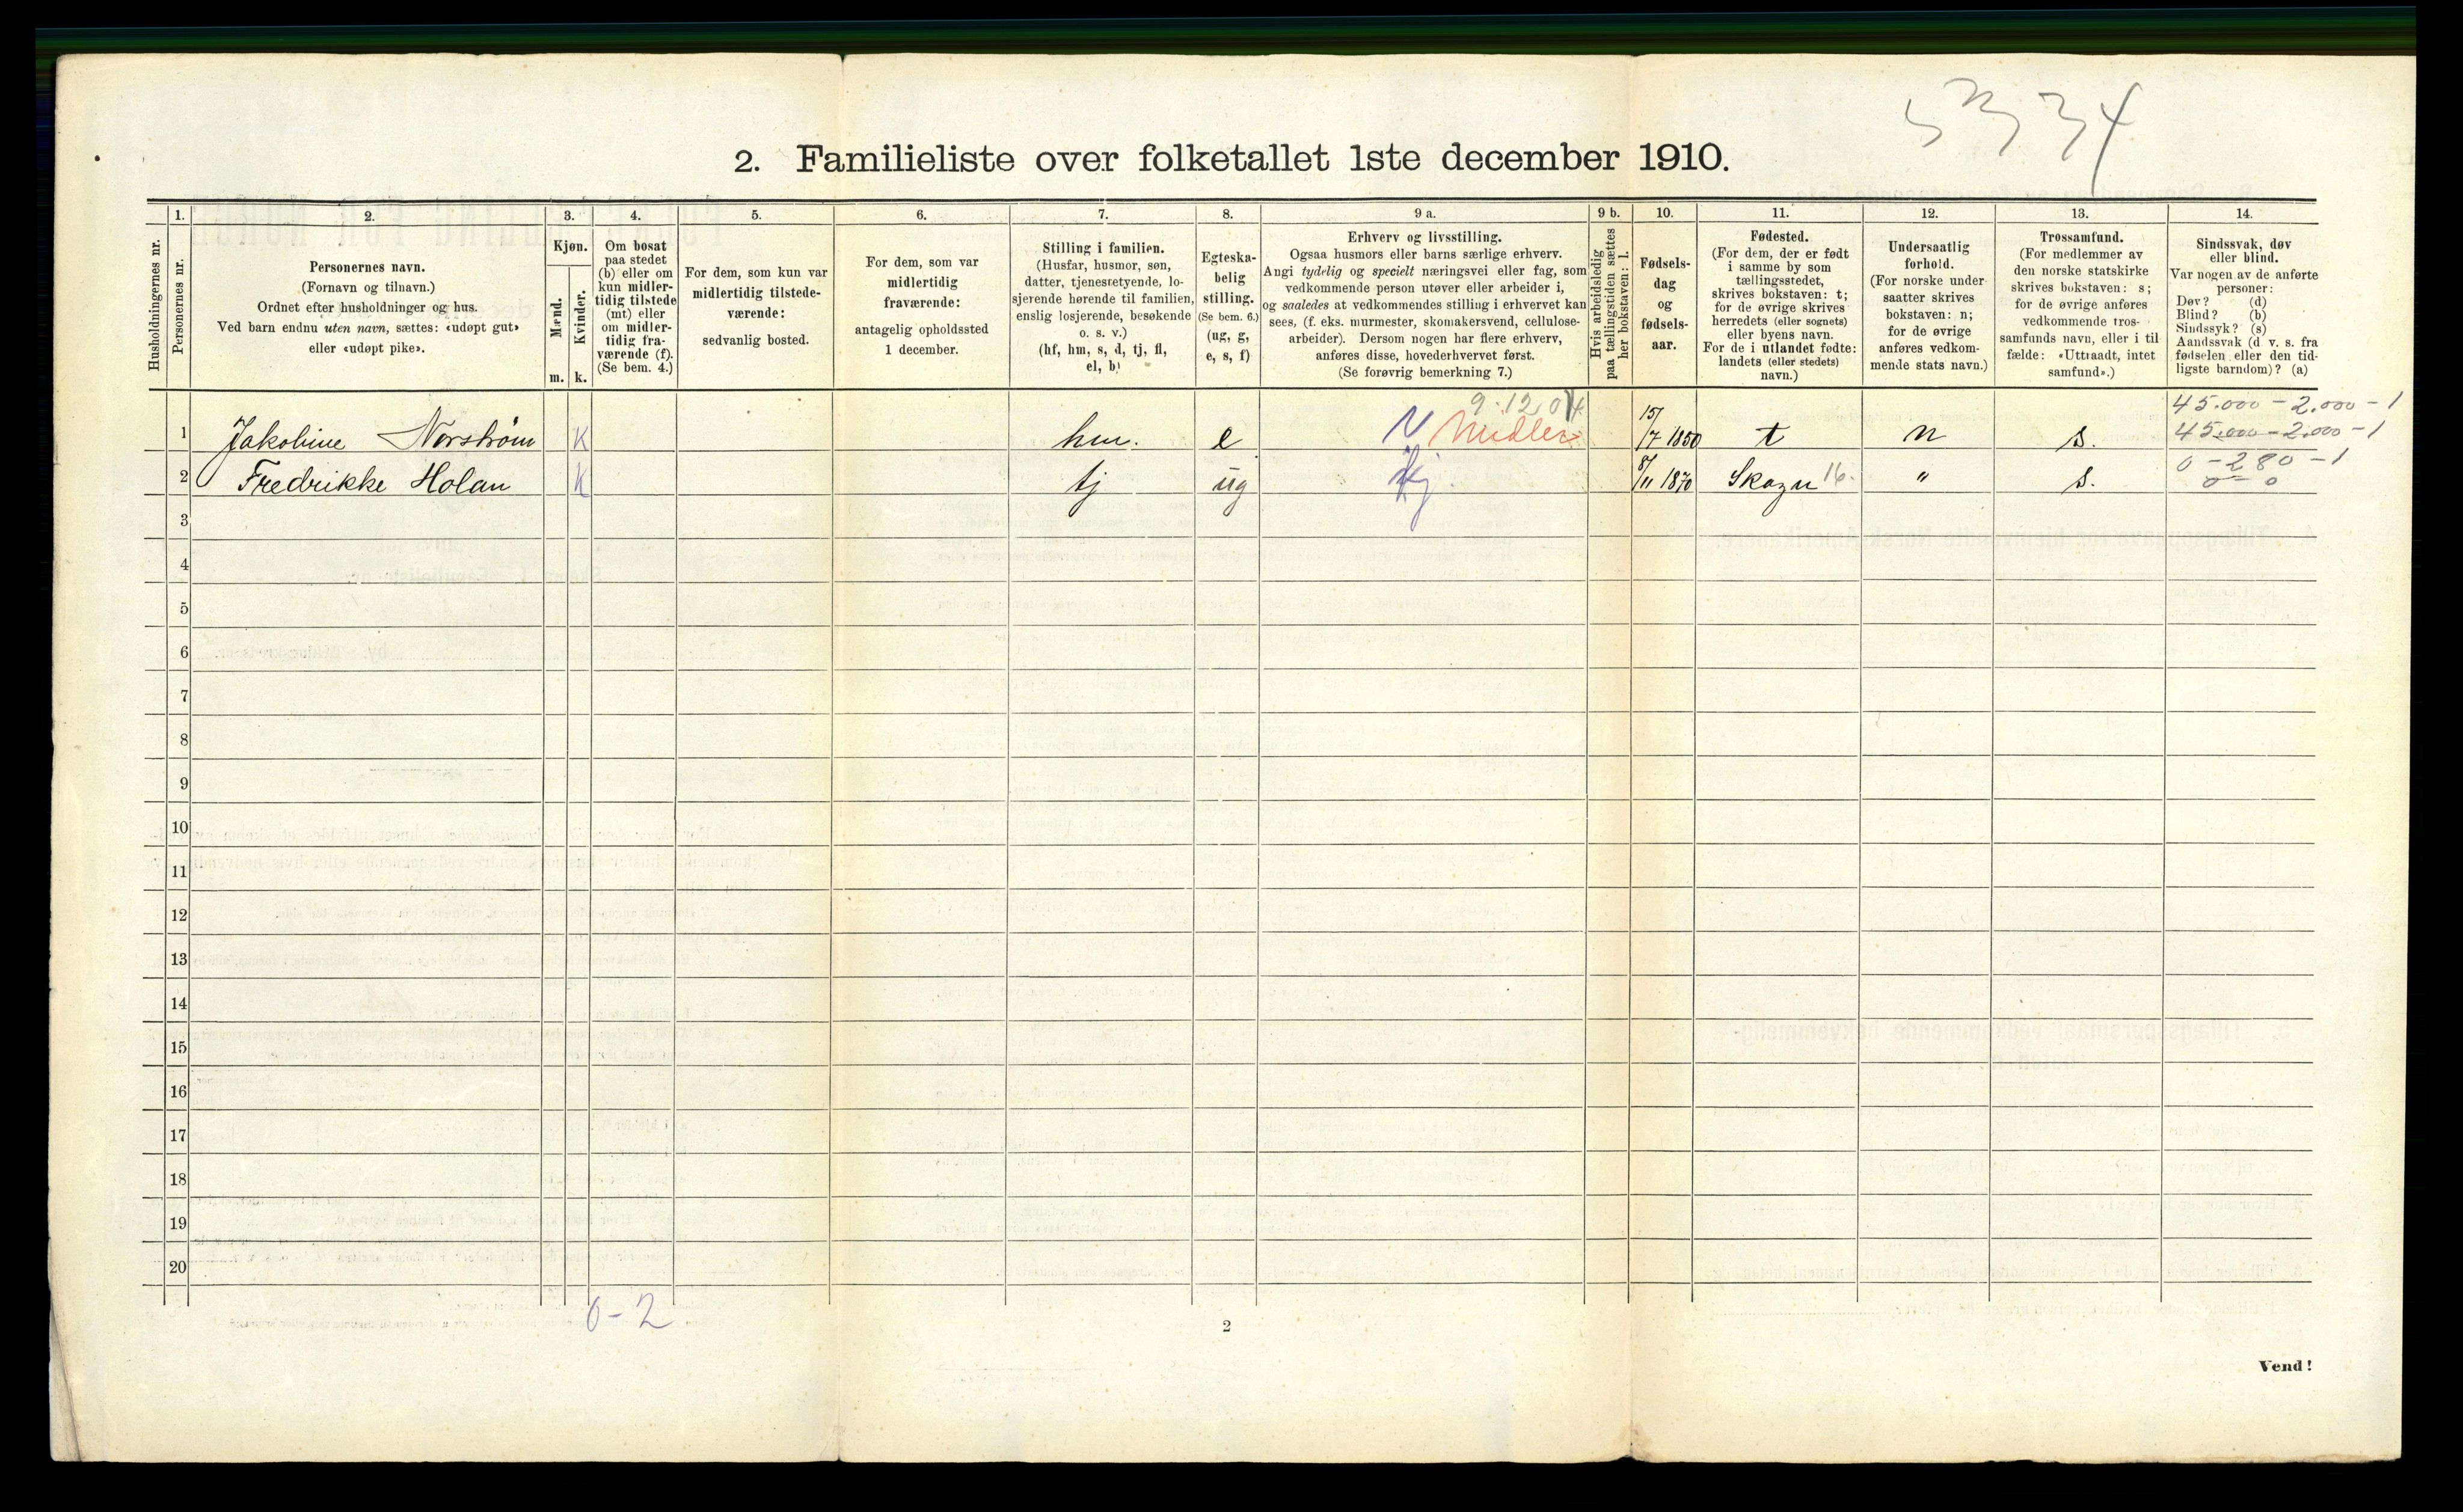 5334
2. Familieliste over folketallet 1ste december 1910.
Husholdningernes nr.
1.
Personernes nr.
2.
Personernes navn.
(Fornavn og tilnavn.)
Ordnet efter husholdninger og hus.
Ved barn endnu uten navn, sættes: «udøpt gut»
eller «udøpt pike».
3.
Kjøn.
Mænd.
Kvinder.
m. k.
4.
Om bosat
paa stedet
(b) eller om
kun midler-
tidig tilstede
(mt) eller
om midler-
tidig fra-
værende (f).
(Se bem. 4.)
5.
For dem, som kun var
midlertidig tilstede-
værende:
sedvanlig bosted.
6.
For dem, som var
midlertidig
fraværende:
antagelig opholdssted
1 december.
7.
Stilling i familien.
(Husfar, husmor, søn,
datter, tjenestetyende, lo-
sjerende hørende til familien,
enslig losjerende, besøkende
o. s. v.)
(hf, hm, s, d, tj, fl,
el, b)
8.
Egteska-
belig
stilling.
(Se bem. 6.)
(ug, g,
e, s, f)
9 a.
Erhverv og livsstilling.
Ogsaa husmors eller barns særlige erhverv.
Angi tydelig og specielt næringsvei eller fag, som
vedkommende person utøver eller arbeider i,
og saaledes at vedkommendes stilling i erhvervet kan
sees, (f. eks. murmester, skomakersvend, cellulose-
arbeider). Dersom nogen har flere erhverv,
anføres disse, hovederhvervet først.
(Se forøvrig bemerkning 7.)
9 b.
Hvis arbeidsledig
paa tællingstiden sættes
her bokstaven: l.
10.
Fødsels-
dag
og
fødsels-
aar.
11.
Fødested.
(For dem, der er født
i samme by som
tællingsstedet,
skrives bokstaven: t;
for de øvrige skrives
herredets (eller sognets)
eller byens navn.
For de i utlandet fødte:
landets (eller stedets)
navn.)
12.
Undersaatlig
forhold.
(For norske under
saatter skrives
bokstaven: n;
for de øvrige
anføres vedkom-
mende stats navn.)
13.
Trossamfund.
(For medlemmer av
den norske statskirke
skrives bokstaven: s;
for de øvrige anføres
vedkommende tros-
samfunds navn, eller i til
fælde: «Uttraadt, intet
samfund».)
14.
Sindssvak, døv
eller blind.
Var nogen av de anførte
personer:
Døv? (d)
Blind? (b)
Sindssyk? (s)
Aandssvak (d v. s. fra
fødselen eller den tid-
ligste barndom)? (a)
9.12.04. 45.000 - 2.000 - 1
1 Jakobine Norstrøm K hm. e N Midler 15/7 1850 t n s. 45.000 - 2.000 - 1
0 - 280 - 1
2 Fredrikke Holan K tj ug tj 8/11 1870 Skogn 16. " s. 0 - 0
3
4
5
6
7
8
9
10
11
12
13
14
15
16
17
18
19
20
0-2
2
Vend!